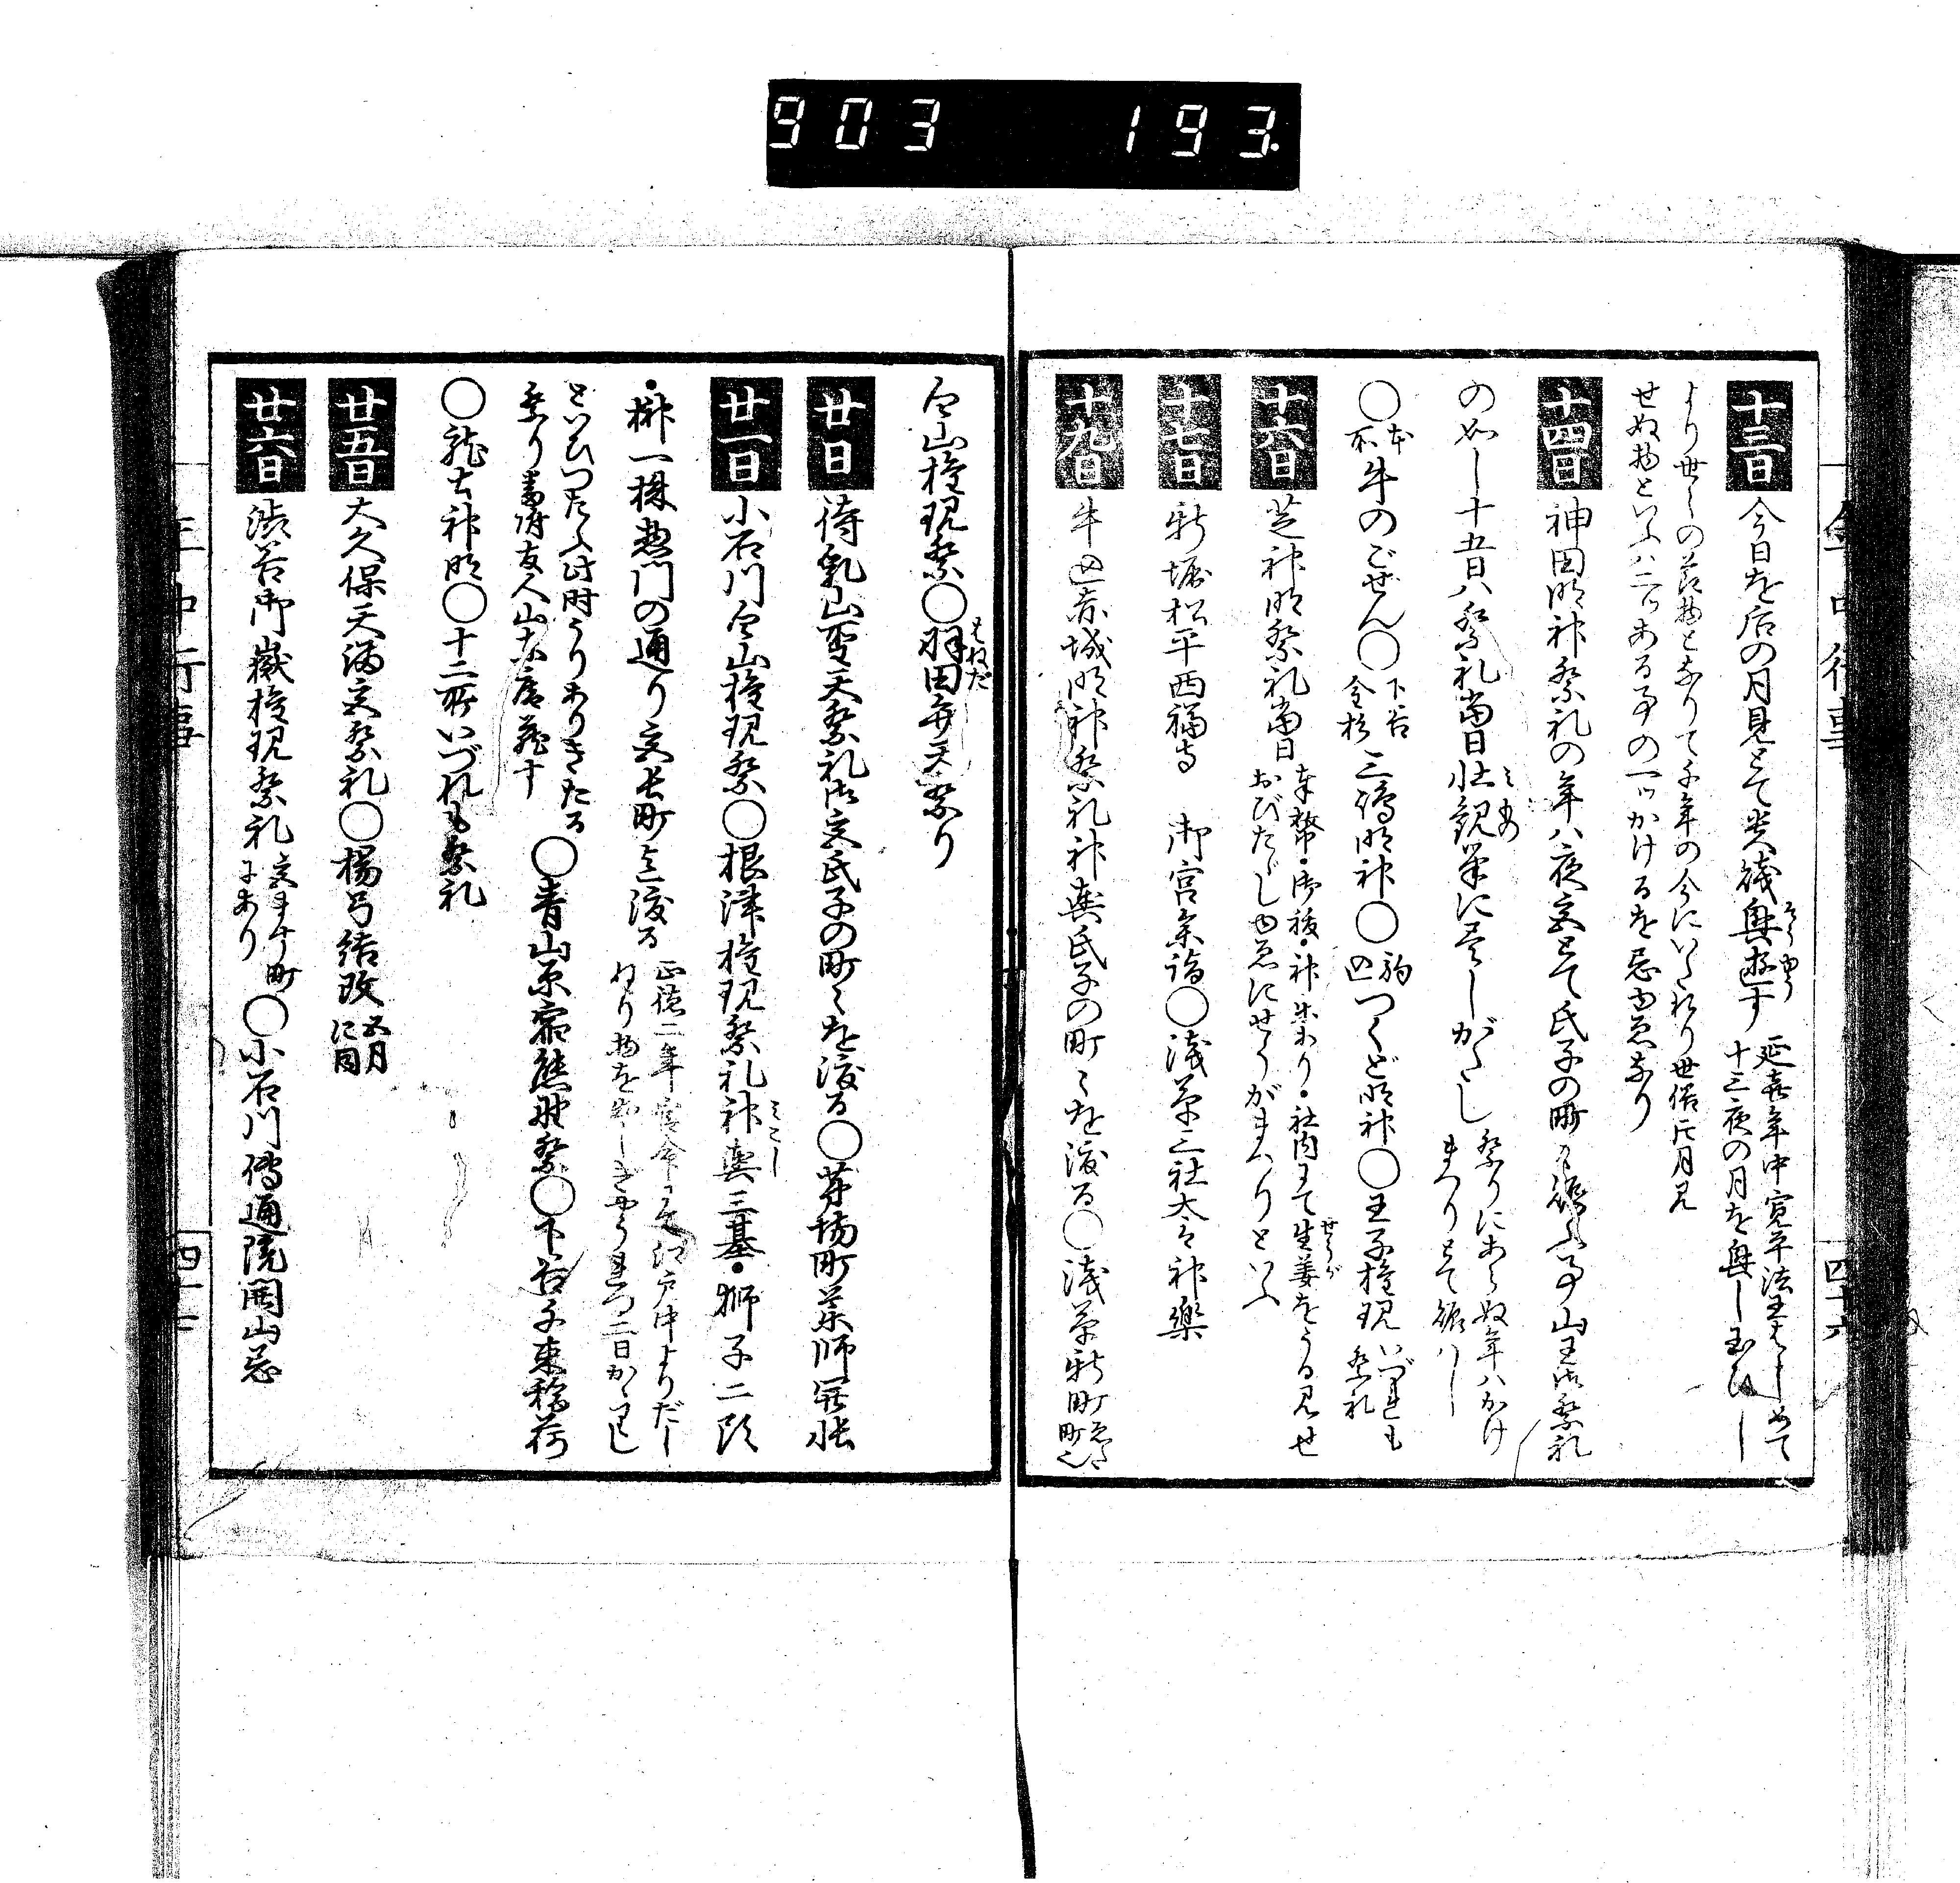 903 193.
年中行事
四十六
十三日 今日を后の月見とて貴賤興遊す 延喜年中寛平法皇はじめて十三夜の月を興じ玉ひし
より世々の節物となりて千年の今にいたれり世俗片月見
せぬ物といふハ二ツある事の一ツかけるを忌ゆゑなり
十四日 神田明神祭礼の年ハ夜宮とて氏子の町々賑ふ事山王御祭礼
のごとし十五日ハ祭礼当日壮観筆に尽しがたし 祭りにあらぬ年ハかけまつりとて賑ハし
〇本所牛のごぜん〇下谷金杉三嶋明神〇駒込つくど明神〇王子権現 いづれも祭礼
十六日 芝神明祭礼当日 奉幣・御祓・神楽あり・社内にて生姜をうる見せおびたゞしゆゑにせうがまつりといふ
十七日 新堀松平西福寺 御宮参詣〇浅草三社太々神楽
十九日 牛込赤城明神祭礼神輿氏子の町々を渡る〇浅草新町
白山権現祭〇羽田弁天祭り
廿日 待乳山聖天祭礼御宮氏子の町々を渡る〇茅場町薬師開帳
廿一日 小石川白山権現祭〇根津権現祭礼神輿三基・獅子二頭
・榊一株惣門の通り宮永町を渡る 正徳二年 江戸中よりだしねり物を出し
といひつたふ此時うりありきたる祭り番附友人山東庵蔵す〇青山原宿熊野祭〇下谷子束稲荷
〇龍土神明〇十二所いづれも祭礼
廿五日 大久保天満宮祭礼〇楊弓結改 五月に同
廿六日 渋谷御嶽権現祭礼 宮ます町にあり〇小石川傳通院開山忌
年中行事
四十七